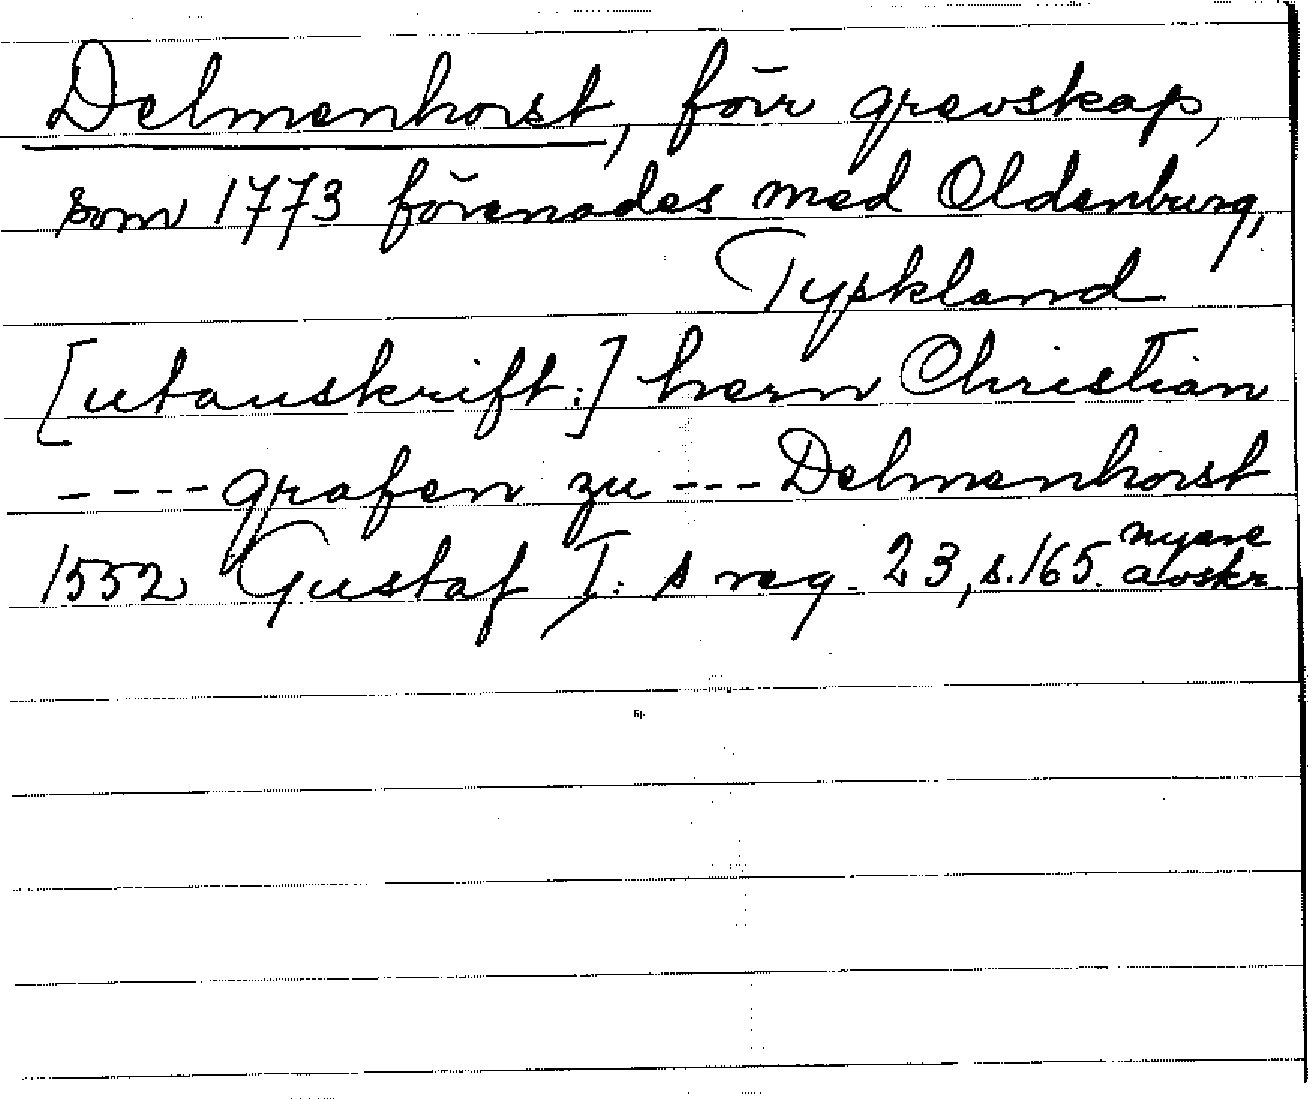 Delmenhorst, förr grevskap,
som 1773 förenades med Oldenburg,
Tyskland
[utanskrift:] hern Christian
---- grafen zu --- Delmenhorst
1552 Gustaf I:s reg. 23, s. 165. nyare avskr